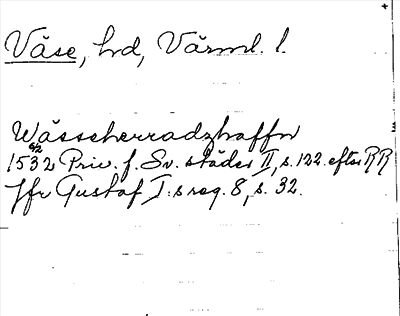 Väse, hd, Värml. l.
Wässeherradzhaffn
6/2
1532 Priv. f. Sv. städer II, s. 122. efter RR
Jfr Gustaf I:s reg. 8, s. 32.